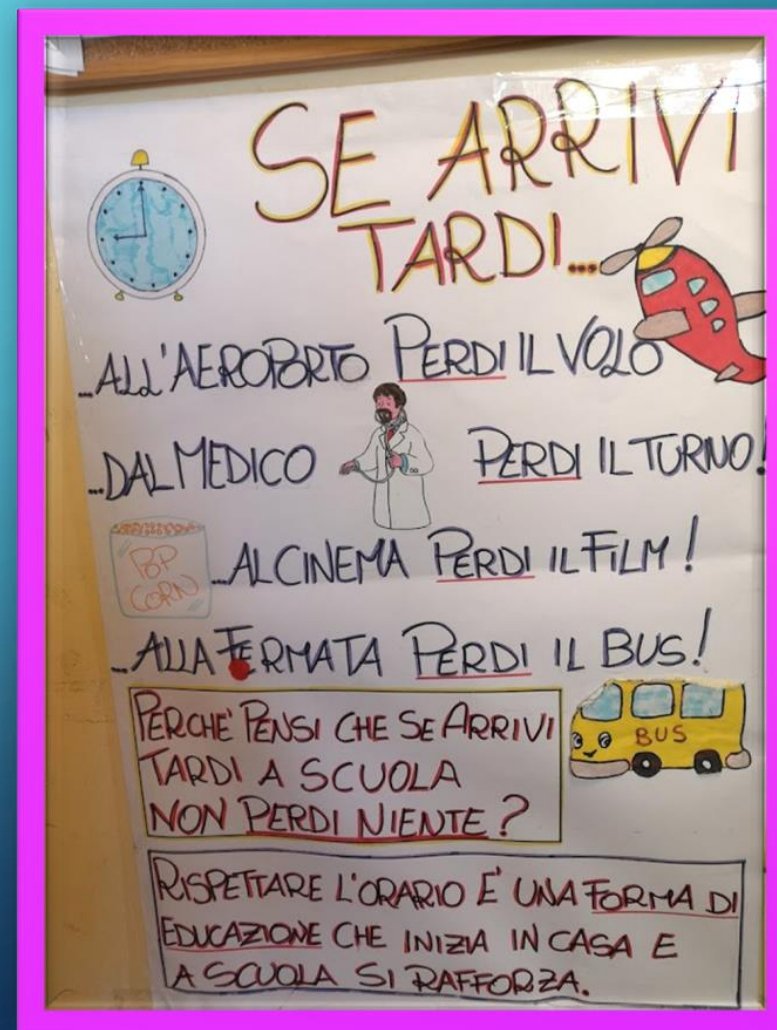 SE ARRIVI
TARDI...
...ALL'AEROPORTO PERDI IL VOLO
...DAL MEDICO PERDI IL TURNO!
POP
CORN
...AL CINEMA PERDI IL FILM!
...ALLA FERMATA PERDI IL BUS!
PERCHE' PENSI CHE SE ARRIVI
TARDI A SCUOLA
NON PERDI NIENTE?
BUS
RISPETTARE L'ORARIO E' UNA FORMA DI
EDUCAZIONE CHE INIZIA IN CASA E
A SCUOLA SI RAFFORZA.